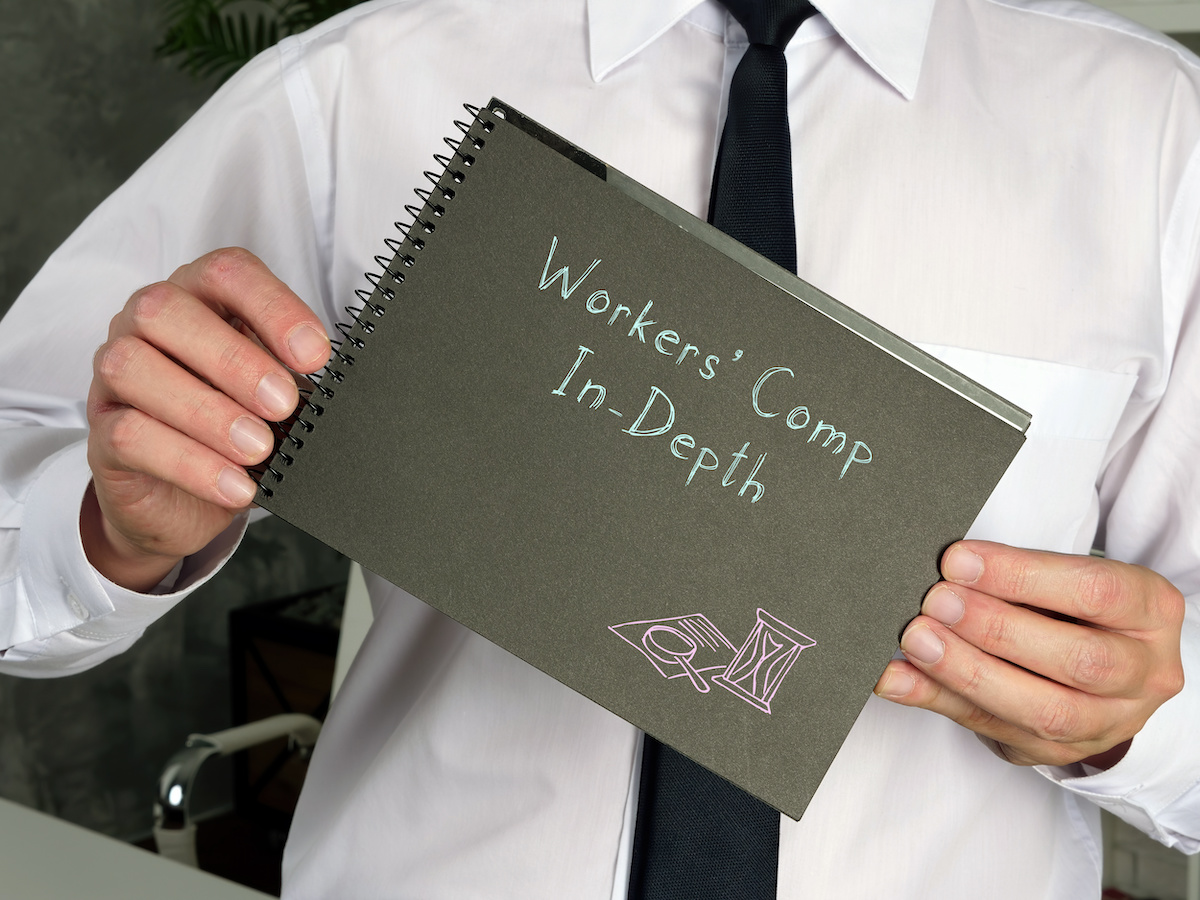 Workers’ Comp
In-Depth